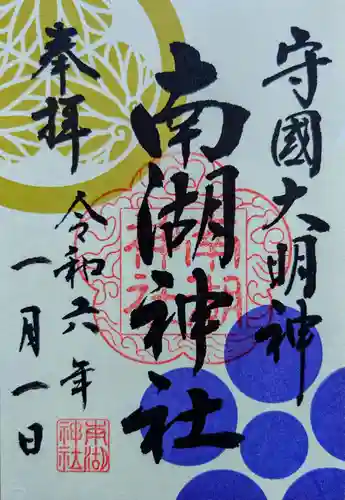 守國大明神
南湖神社
奉拝
令和六年
一月一日
南湖神社
南湖
神社